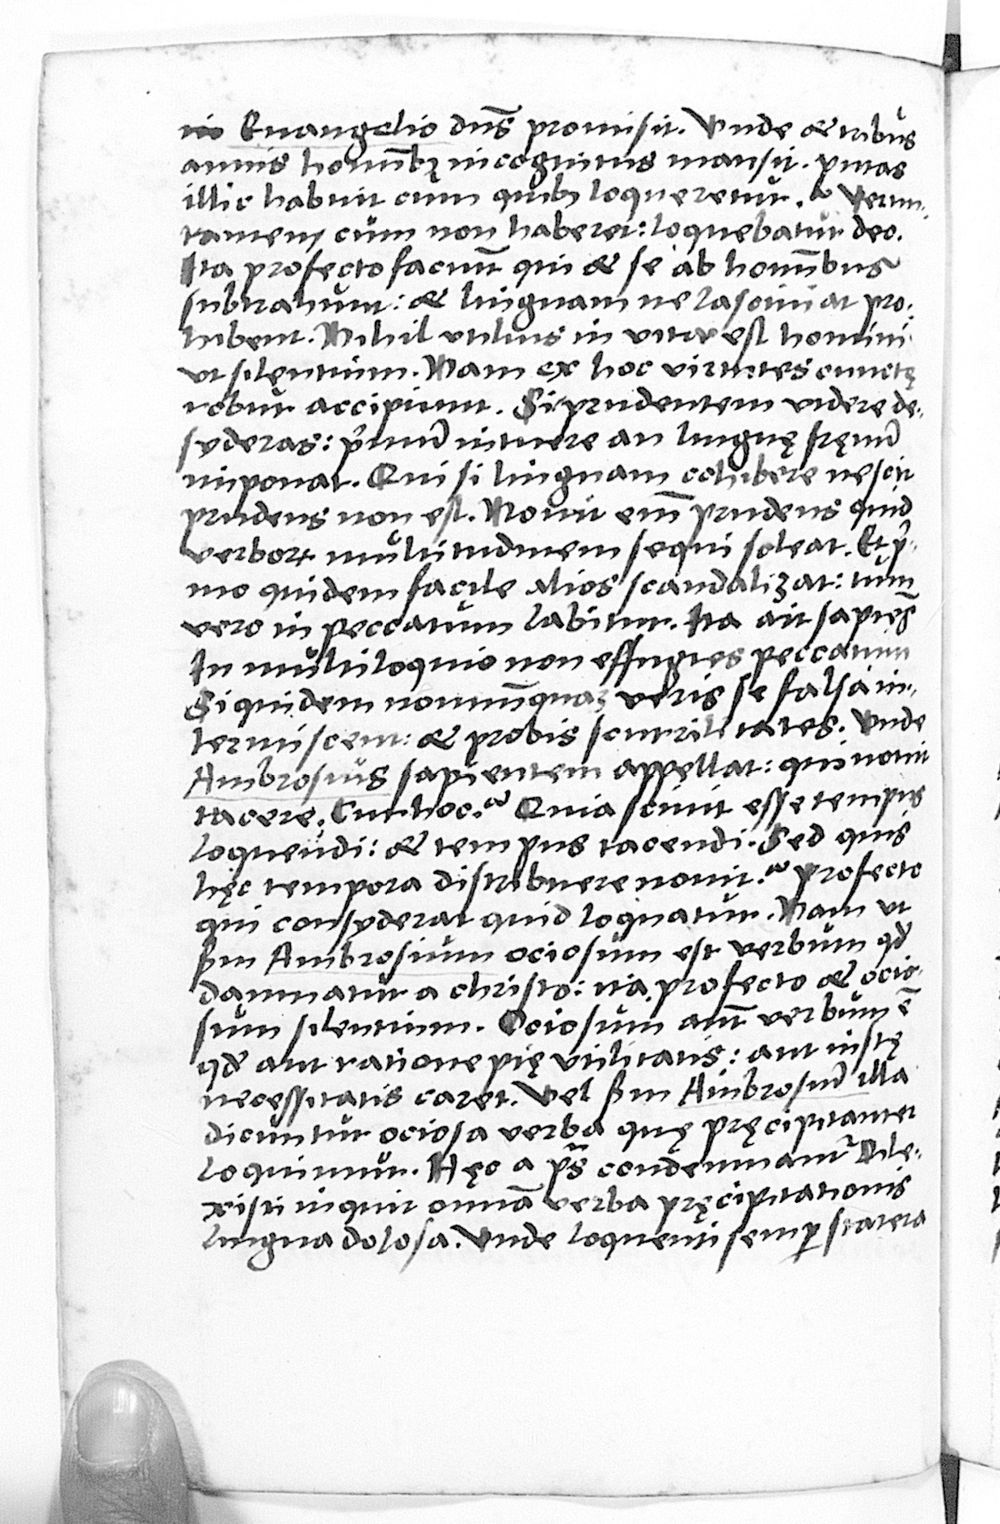 in Euangelio dn̄s promisit. Vnde & tribus
annis homībꝫ incognitus mansit. putas
illic habuit cum quibꝫ loqueretur? Verum-
tamen cum non haberet: loquebatur deo.
Ita profecto faciūt qui & se ab homībus
subtrahunt: & linguam ne lasciuiat pro-
hibent. Nihil vtilius in vita est homini
vt silentium. Nam ex hoc virtutes cunctę
robur accipiunt. Si prudentem videre de-
syderas: pͥmum̄ intuere an linguę fręnum̄
imponat. Qui si linguam cohibere nescit
prudens non est. Nouit em̄ prudens quid
verborꝝ multitudinem sequi soleat. Et pͥ-
mo quidem facile alios scandalizat: tum
vero in peccatum labitur. Ita ait sapiēs
In multiloquio non effugies peccatum
Siquidem nonnūquaꝫ veris se falsa in-
termiscent: & probis scurrilitates. Vnde
Ambrosius sapientem appellat: qui nouit
tacere. Cur hoc? Quia sciuit esse tempus
loquendi: & tempus tacendi. Sed quis
hęc tempora distribuere nouit? profecto
qui consyderat quid loquatur. Nam vt
ẜm Ambrosium ociosum est verbum qđ
damnatur a christo: ita profecto & ocio-
sum silentium. Ociosum aūt verbum ē
qđ aut ratione pię vtilitatis: aut iustę
necessitatis caret. Vel ẜm Ambrosiū illa
dicuntur ociosa verba quę pręcipitanter
loquimur. Hęc a p̄s condemnant᷑ Dile-
xisti inquit omnia verba pręcipitationis
lingua dolosa. Vnde loquenti semꝑ statera